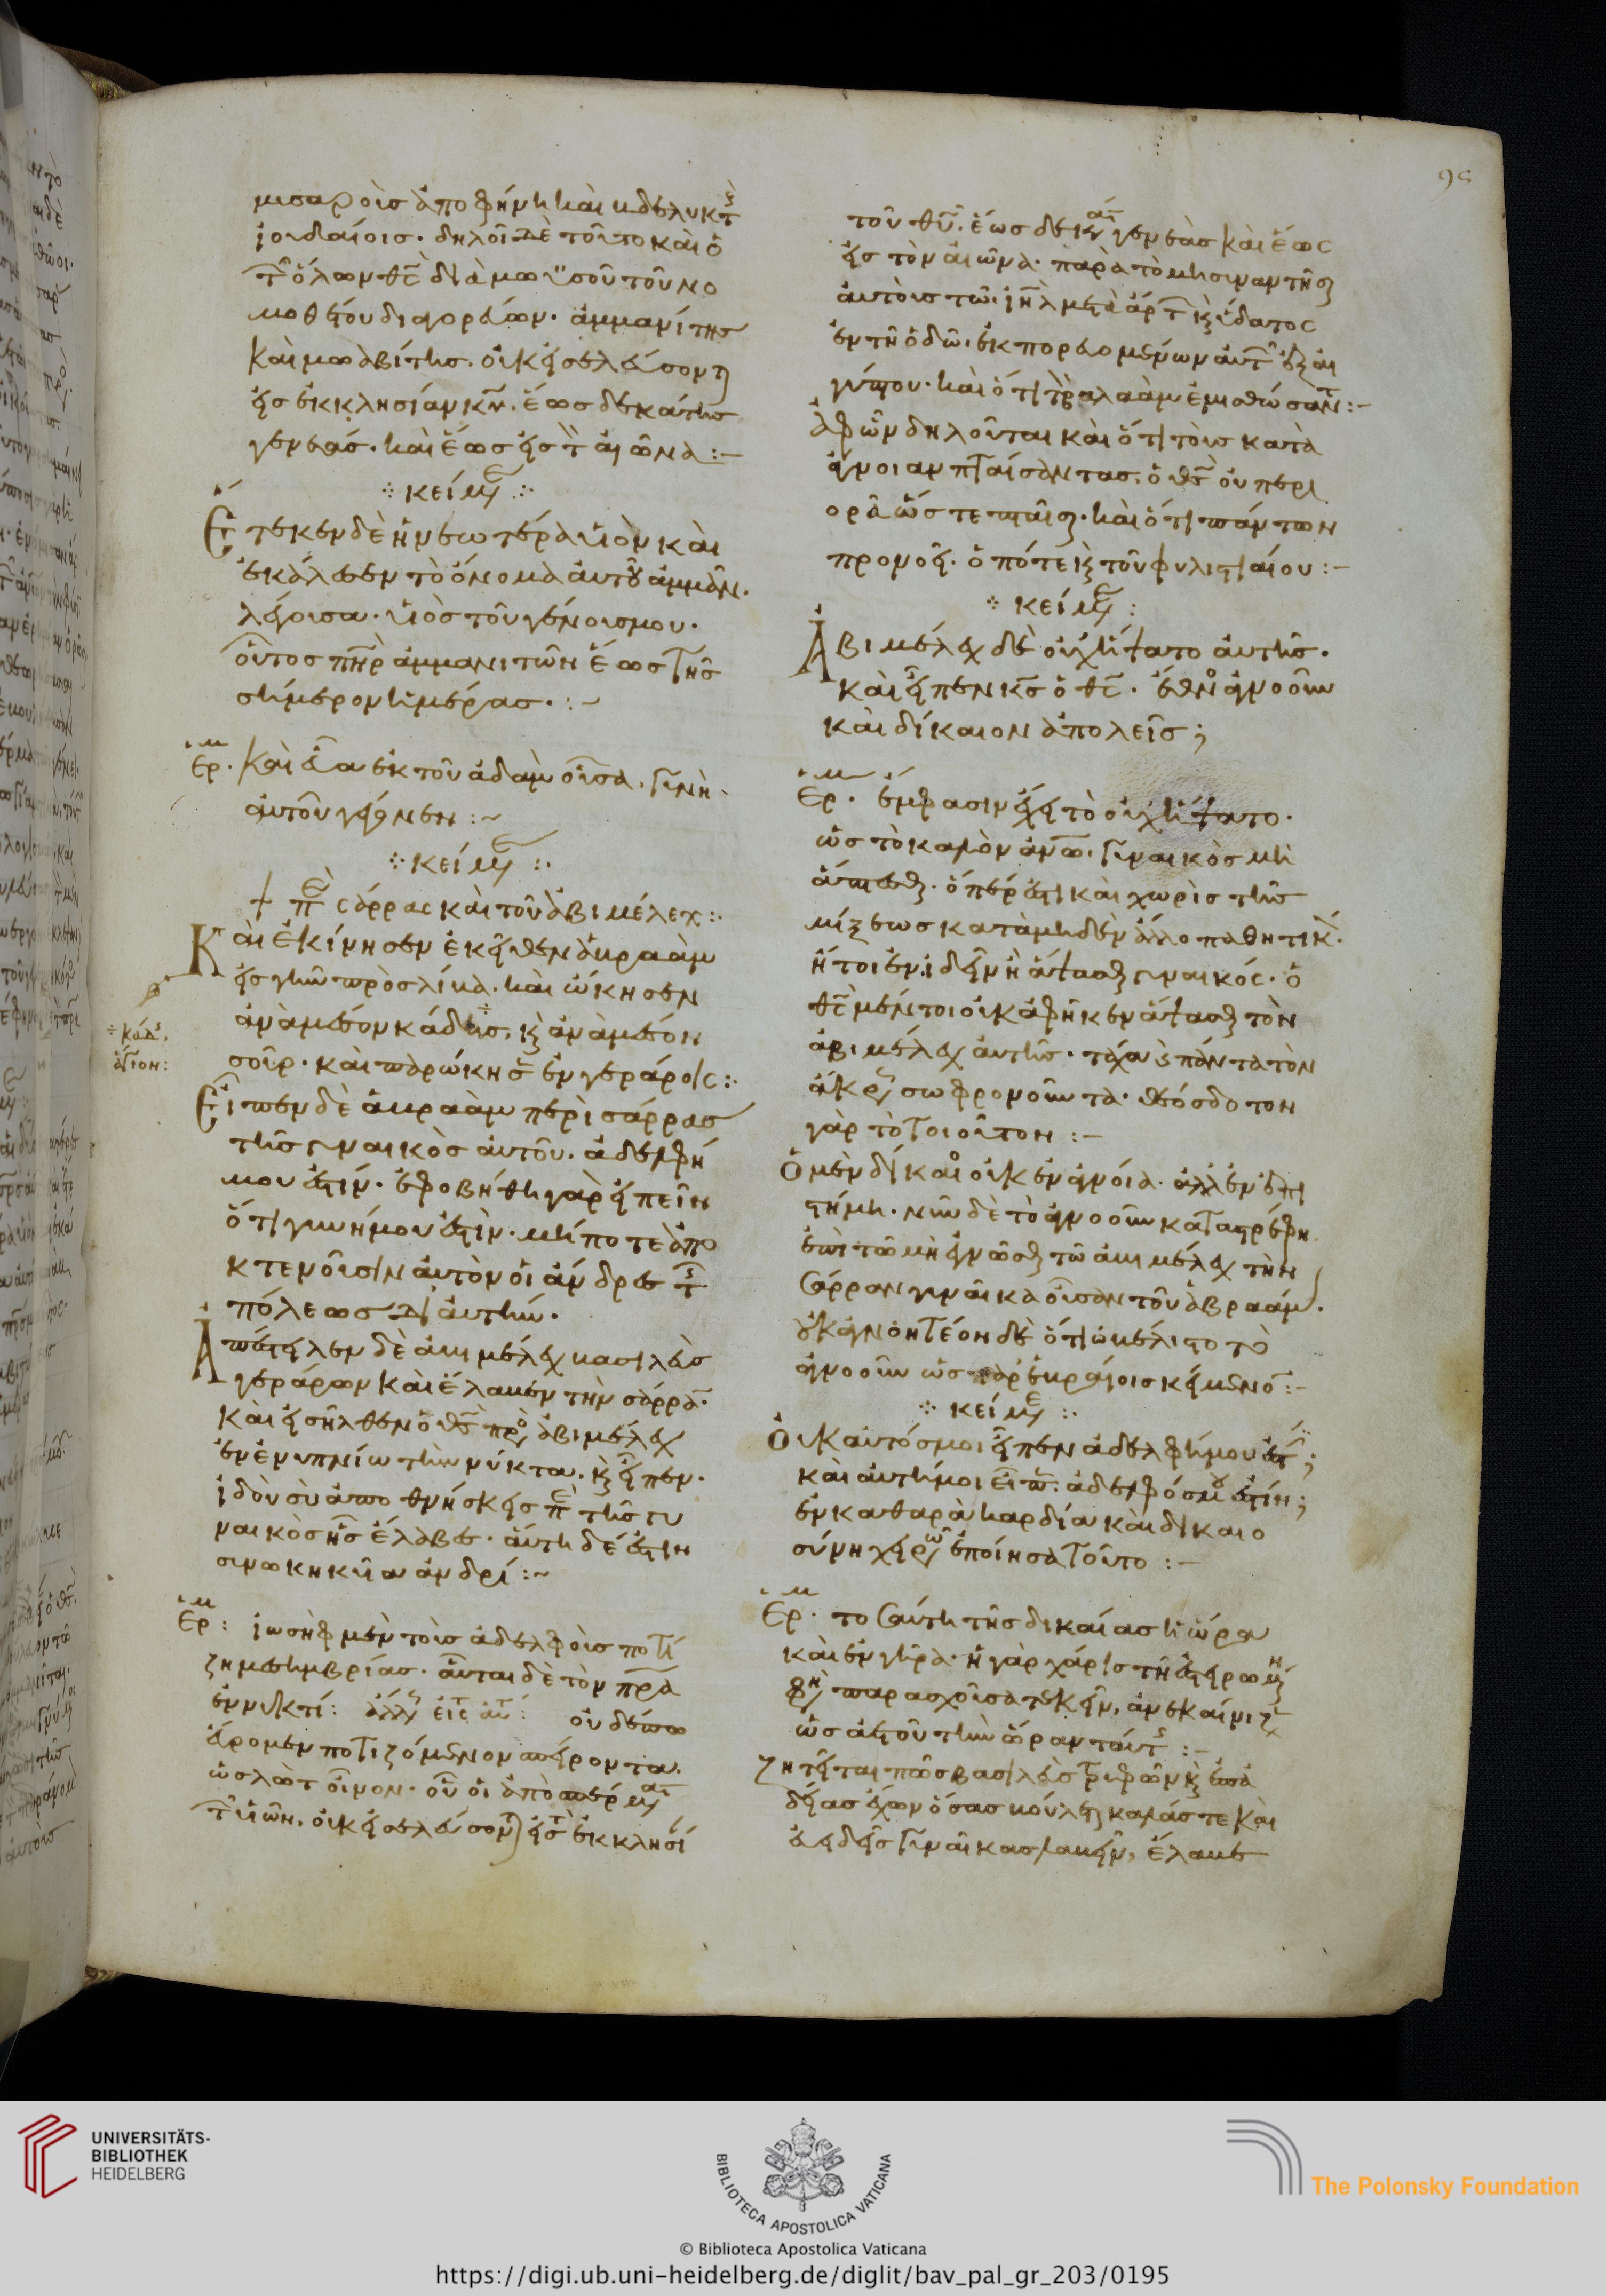 96
μισαροὶς ἀποφήνη καὶ βδελυκτ
ἰουδαίοις. δηλοῖ δὲ τοῦτο καὶ ὁ
τῶν ὅλων θς διὰ μωϋσοῦ τοῦ νο
μοθέτου διαγορεύων. ἀμμανίτης
καὶ μωαβίτης. οὐκ εἰσελεύσονται
εἰς ἐκκλησίαν κυ. ἕως δεκάτης
γενεᾶς. καὶ ἕως εἰς τ αἰῶνα :-
κείμε
Ἔτεκεν δὲ ἡ νεωτέρα υἱὸν καὶ
ἐκάλεσεν τὸ ὄνομα αὐτοῦ ἀμμὰν.
λέγουσα. υἱὸς τοῦ γένους μου.
οὗτος πὴρ ἀμμανιτῶν ἕως τῆς
σήμερον ἡμέρας. :~
Ερμ. καὶ εὔα ἐκ τοῦ ἀδὰμ οὖσα. γυνὴ
αὐτοῦ γέγονεν :~
κείμε
† πε σάρρας καὶ τοῦ ἀβιμέλεχ :.
Καὶ ἐκίνησεν ἐκεῖθεν ἀβραὰμ
εἰς γῆν πρὸς λίβα. καὶ ᾤκησεν
ἀνὰ μέσον κάδης. κ ἀνὰ μέσον
σοῦρ. καὶ παρῴκησ ἐν γεράροις :.
κάδ.
ἅγιον:
Εἶπεν δὲ ἀβραὰμ περὶ σάρρας
τῆς γυναικὸς αὐτοῦ. ἀδελφή
μου ἐστίν. ἐφοβήθη γὰρ εἰπεῖν
ὅτι γυνή μου ἐστὶν. μήποτε ἀπο
κτενοῦσιν αὐτὸν οἱ ἄνδρες τ
πόλεως δι αὐτήν.
Ἀπέστειλεν δὲ ἀβιμέλεχ βασιλεὺς
γεράρων καὶ ἔλαβεν τὴν σάρρα.
καὶ εἰσῆλθεν ὁ θς πρ ἀβιμέλεχ
ἐν ἐνυπνίω τὴν νύκτα. κ εἶπεν.
ἰδοὺ σὺ ἀποθνήσκεις πε τῆς γυ
ναικὸς ἧς ἔλαβες. αὕτη δέ ἐστιν
συνωκηκυῖα ἀνδρί :~
Ερμ : ἰωσὴφ μὲν τοὺς ἀδελφοὺς ποτί
ζει μεσημβρίας. αὗται δὲ τὸν πρα
ἐν νυκτί: οὐδέπω
εὕρομεν ποτιζόμενον
ὡς λὼτ οἶνον. οὗ οἱ ἀπὸ σπέρματ
τ υἱῶν. οὐκ εἰσελεύσοντ εἰς τ ἐκκλησί
τοῦ θυ. ἕως δεκάτ γενεὰς καὶ ἕως
εἰς τὸν αἰῶνα. παρὰ τὸ μὴ συναντῆσαι
αὐτοὺς τῶ ιηλ μετὰ ἄρτ κ ὕδατος
ἐν τῆ ὁδῶ. ἐκπορευομένων αὐτ ἐξ αἰ
γύπτου. καὶ ὅτι τ βαλαὰμ ἐμισθώσαντ :-
Ἀφ ὧν δηλοῦται καὶ ὅτι τοὺς κατὰ
ἄγνοιαν πταίσαντας. ὁ θς οὐ περι
ορᾶ ὥστε πταῖσαι. καὶ ὅτι πάντων
προνοεῖ. ὁπότε κ τοῦ φυλιστιαίου :-
κείμε :
Ἀβιμέλεχ δὲ οὐχ ἥψατο αὐτῆς.
καὶ εἶπεν κς ὁ θς. ἔθνο ἀγνοοῦν
καὶ δίκαιον ἀπολεῖς;
Ερμ. ἔμφασιν ἔχει τὸ οὐχ ἥψατο.
ὡς τὸ καλὸν ἀνω. γυναικὸς μὴ
ἅπτεσθαι. ὅπερ ἐστὶ καὶ χωρὶς τῆς
μίξεως κατὰ μηδὲν ἄλλο παθητικ.
ἤτοι ἐν ἰδεῖν ἢ ἅψασθαι γυναικός. ὁ
θς μέντοι οὐκ ἀφῆκεν ἅψασθαι τὸν
ἀβιμέλεχ αὐτῆς. τάχα κ πάντα τὸν
ἄκρ σωφρονοῦντα. θεόσδοτον
γὰρ τὸ τοιοῦτον :-
Ὁ μὲν δίκαιο οὐκ ἐν ἀγνοία. ἀλλ ἐν ἐπι
στήμη. νῦν δὲ τὸ ἀγνοοῦν καταστρέφει
ἐπὶ τῶ μὴ ἐγνῶσθαι τῶ ἀβιμέλεχ τὴν
Σάρραν γυναῖκα οὖσαν τοῦ ἀβραάμ.
οὐκ ἀγνοητέον δὲ ὅτι ὠβέλισται τὸ
ἀγνοοῦν ὡς παρ ἑβραίοις κείμενο :-
κείμε :.
Οὐκ αὐτός μοι εἶπεν ἀδελφή μου ἐστ ;
καὶ αὐτή μοι εἶπ. ἀδελφός μου ἐστίν;
ἐν καθαρᾶ καρδία καὶ δικαιο
σύνη χειρῶ ἐποίησα τοῦτο :-
Ερμ. τοσαύτη τῆς δικαίας ἡ ὥρα
καὶ ἐν γήρα. ἡ γὰρ χάρις τῆ στειρωμένη
φη παρασχοῦσα τεκεῖν. ἀνεκαίνιζ
ὡς ἀστοῦ τὴν ὥραν ταύτ :-
Ζητεῖται πῶς βασιλεὺς τρυφῶν κ ἐπ
ἀδείας ἔχων ὅσας βούλεται καλάς τε καὶ
εὐειδεῖς γυναῖκας λαβεῖν, ἔλαβε
UNIVERSITÄTS-
BIBLIOTHEK
HEIDELBERG
BIBLIOTECA APOSTOLICA VATICANA
The Polonsky Foundation
© Biblioteca Apostolica Vaticana
https://digi.ub.uni-heidelberg.de/diglit/bav_pal_gr_203/0195